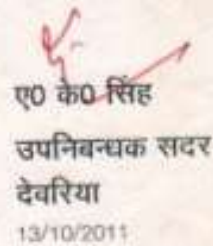 ए0 के0 सिंह
उपनिबन्धक सदर
देवरिया
13/10/2011